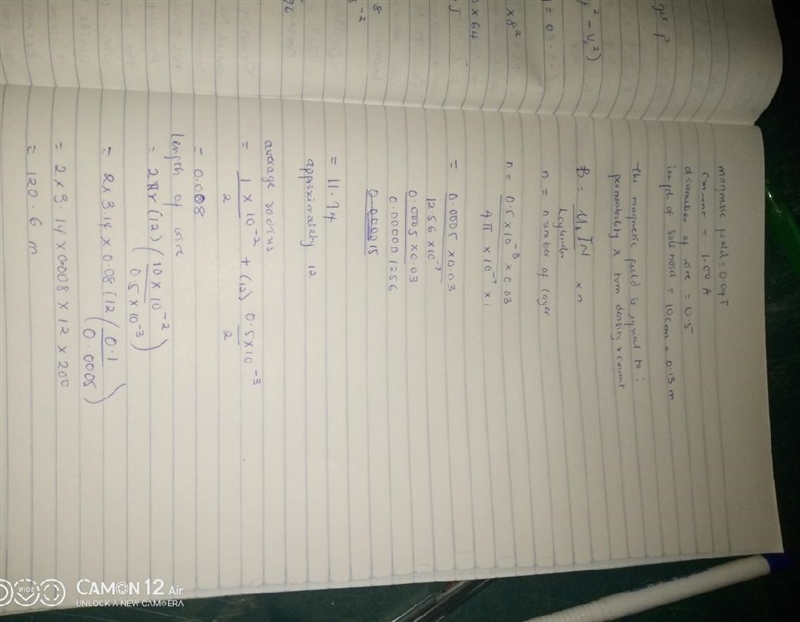 get P
² - V₀²)
1 = 0
x 8²
0 x 64
J
8
5⁻²
96
magnetic field = 0.04T
Current = 1.00 A
diameter of wire = 0.5
length of solenoid = 10cm = 0.13 m
the magnetic field is equal to :
permeability x turn density x current
B = μ₀IN x n
Lcylinder
n = number of layer
n = 0.5 x 10⁻³ x 0.03
4π x 10⁻⁷ x 1
= 0.0005 x 0.03
12.56 x 10⁻⁷
0.0005 x 0.03
0.000001256
0.000015
= 11.94
approximately 12
average radius
= 1 x 10⁻² + (12) 0.5 x 10⁻³
2 2
= 0.008
length of wire
= 2πr (12) (10 x 10⁻²
0.5 x 10⁻³)
= 2 x 3.14 x 0.08 (12 (0.1
0.0005)
= 2 x 3.14 x 0.008 x 12 x 200
= 120.6 m
WIDE
CAMON 12 Air
UNLOCK A NEW CAMERA